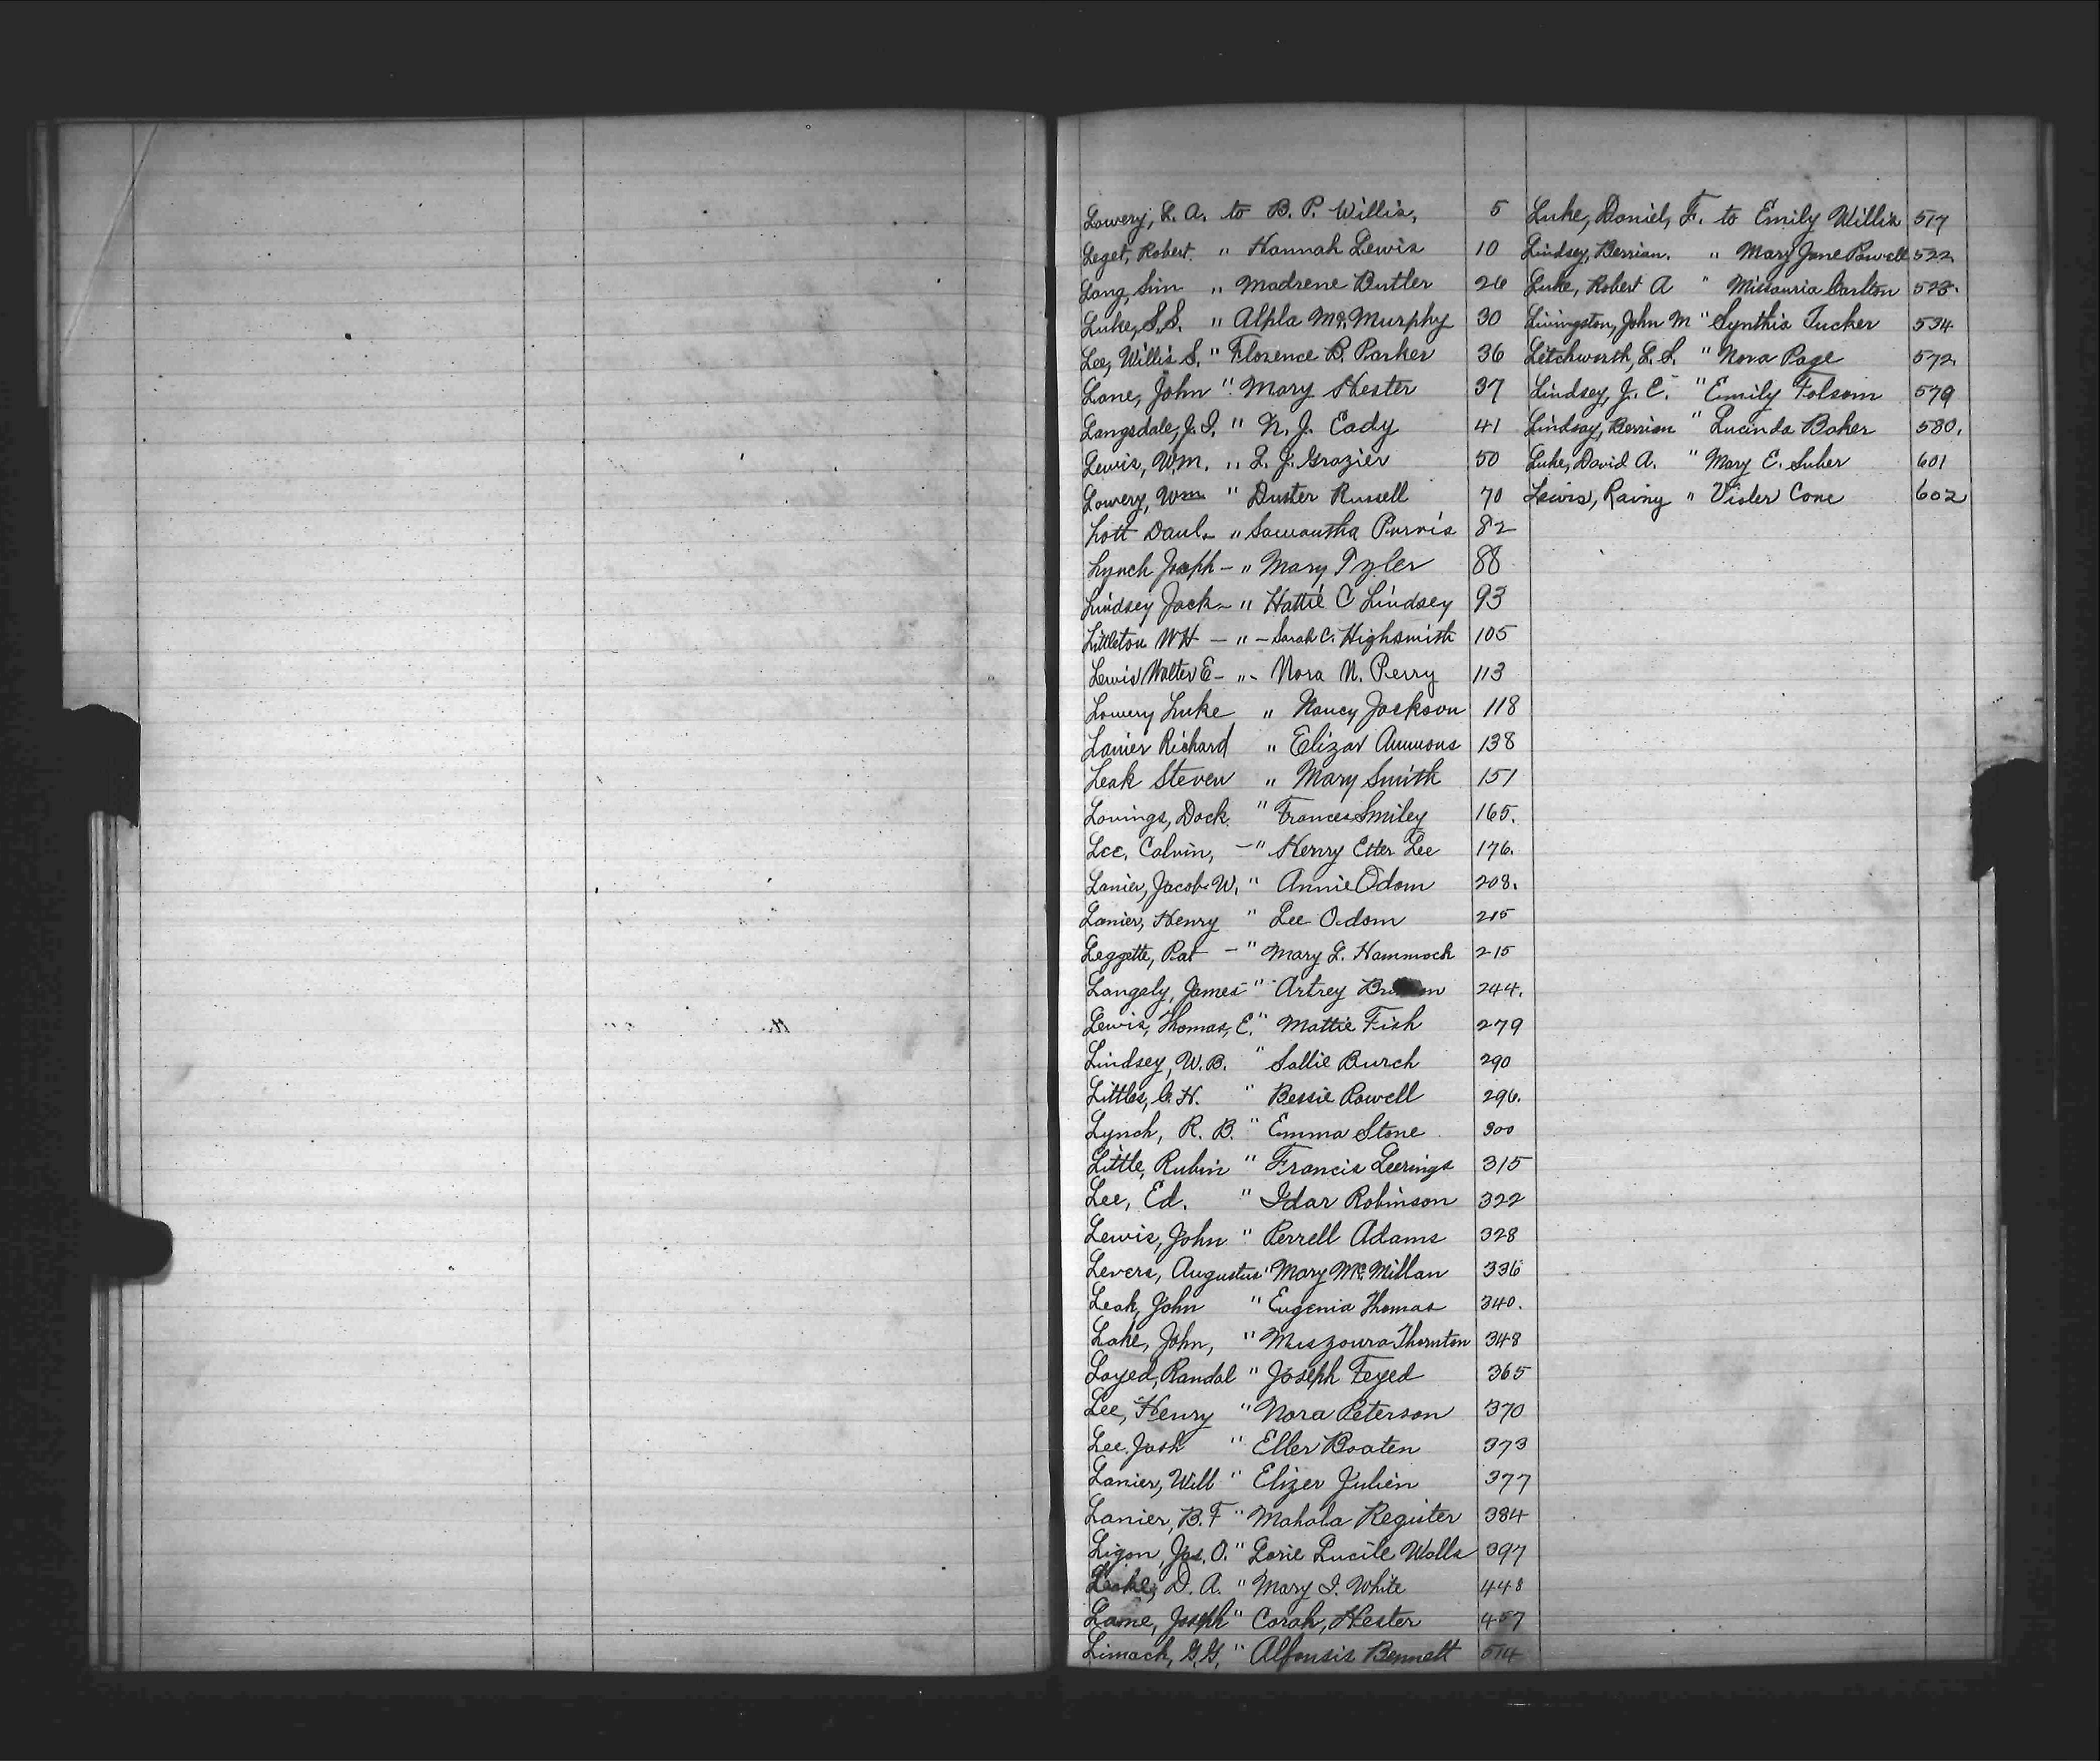 Lowery, L. A. to B. P. Willis, 5
Leget, Robert. " Hannah Lewis 10
Lang, Sim " Madrene Butler 26
Luke, S. S. " Alpla Mc. Murphy 30
Lee, Willis S. " Florence B. Parker 36
Lane, John " Mary Hester 37
Langsdale, J. I. " N. J. Eady 41
Lewis, Wm. " L. J. Grazier 50
Lowery, Wm " Duster Russell 70
Lott Danl. " Samantha Purvis 82
Lynch Joseph - " Mary Tyler 88
Lindsey Jack - " Hattie C Lindsey 93
Littleton W H - " - Sarah C. Highsmith 105
Lewis Walter E - " - Nora N. Perry 113
Lowery Luke " Nancy Jackson 118
Lanier Richard " Elizar Ammons 138
Leak Steven " Mary Smith 151
Lovings, Dock. " Frances Smiley 165.
Lee, Calvin, - " Henry Etter Lee 176.
Lanier, Jacob W. " Annie Odom 208.
Lanier, Henry " Lee Odom 215
Leggette, Pat - " Mary L. Hammock 215
Langely, James " Artrey 244.
Lewis, Thomas, E. " Mattie Fish 279
Lindsey, W. B. " Sallie Burch 290
Littles, C. H. " Bessie Powell 296.
Lynch, R. B. " Emma Stone 300
Little, Rubin " Francis Leerings 315
Lee, Ed. " Idar Robinson 322
Lewis, John " Perrell Adams 328
Levers, Augustus " Mary Mc. Millan 336
Leak, John " Eugenia Thomas 340.
Lake, John, " Muszoura Thornton 348
Loyed, Randal " Joseph Feyed 365
Lee, Henry " Nora Peterson 370
Lee Josh " Eller Boaten 373
Lanier, Will " Elizer Julien 377
Lanier, B. F " Mahala Register 384
Ligon, Jas. O. " Lorie Lucile Walls 397
D. A. " Mary I. White 448
Lame, Joseph " Corah, Hester 457
Limach, G. G. " Alfonsis Bennett 514
Luke, Daniel, F. to Emily Willis 517
Lindsey, Berrian. " Mary Jane Powell 522.
Luke, Robert A " Missouria Carlton 523.
Livingston, John M " Synthia Tucker 534
Litchworth, L. L. " Nora Page 572.
Lindsey, J. C. " Emily Folsom 579
Lindsay, Berrian " Lucinda Baker 580.
Luke, David A. " Mary E. Suber 601
Lewis, Rainy " Visler Cone 602